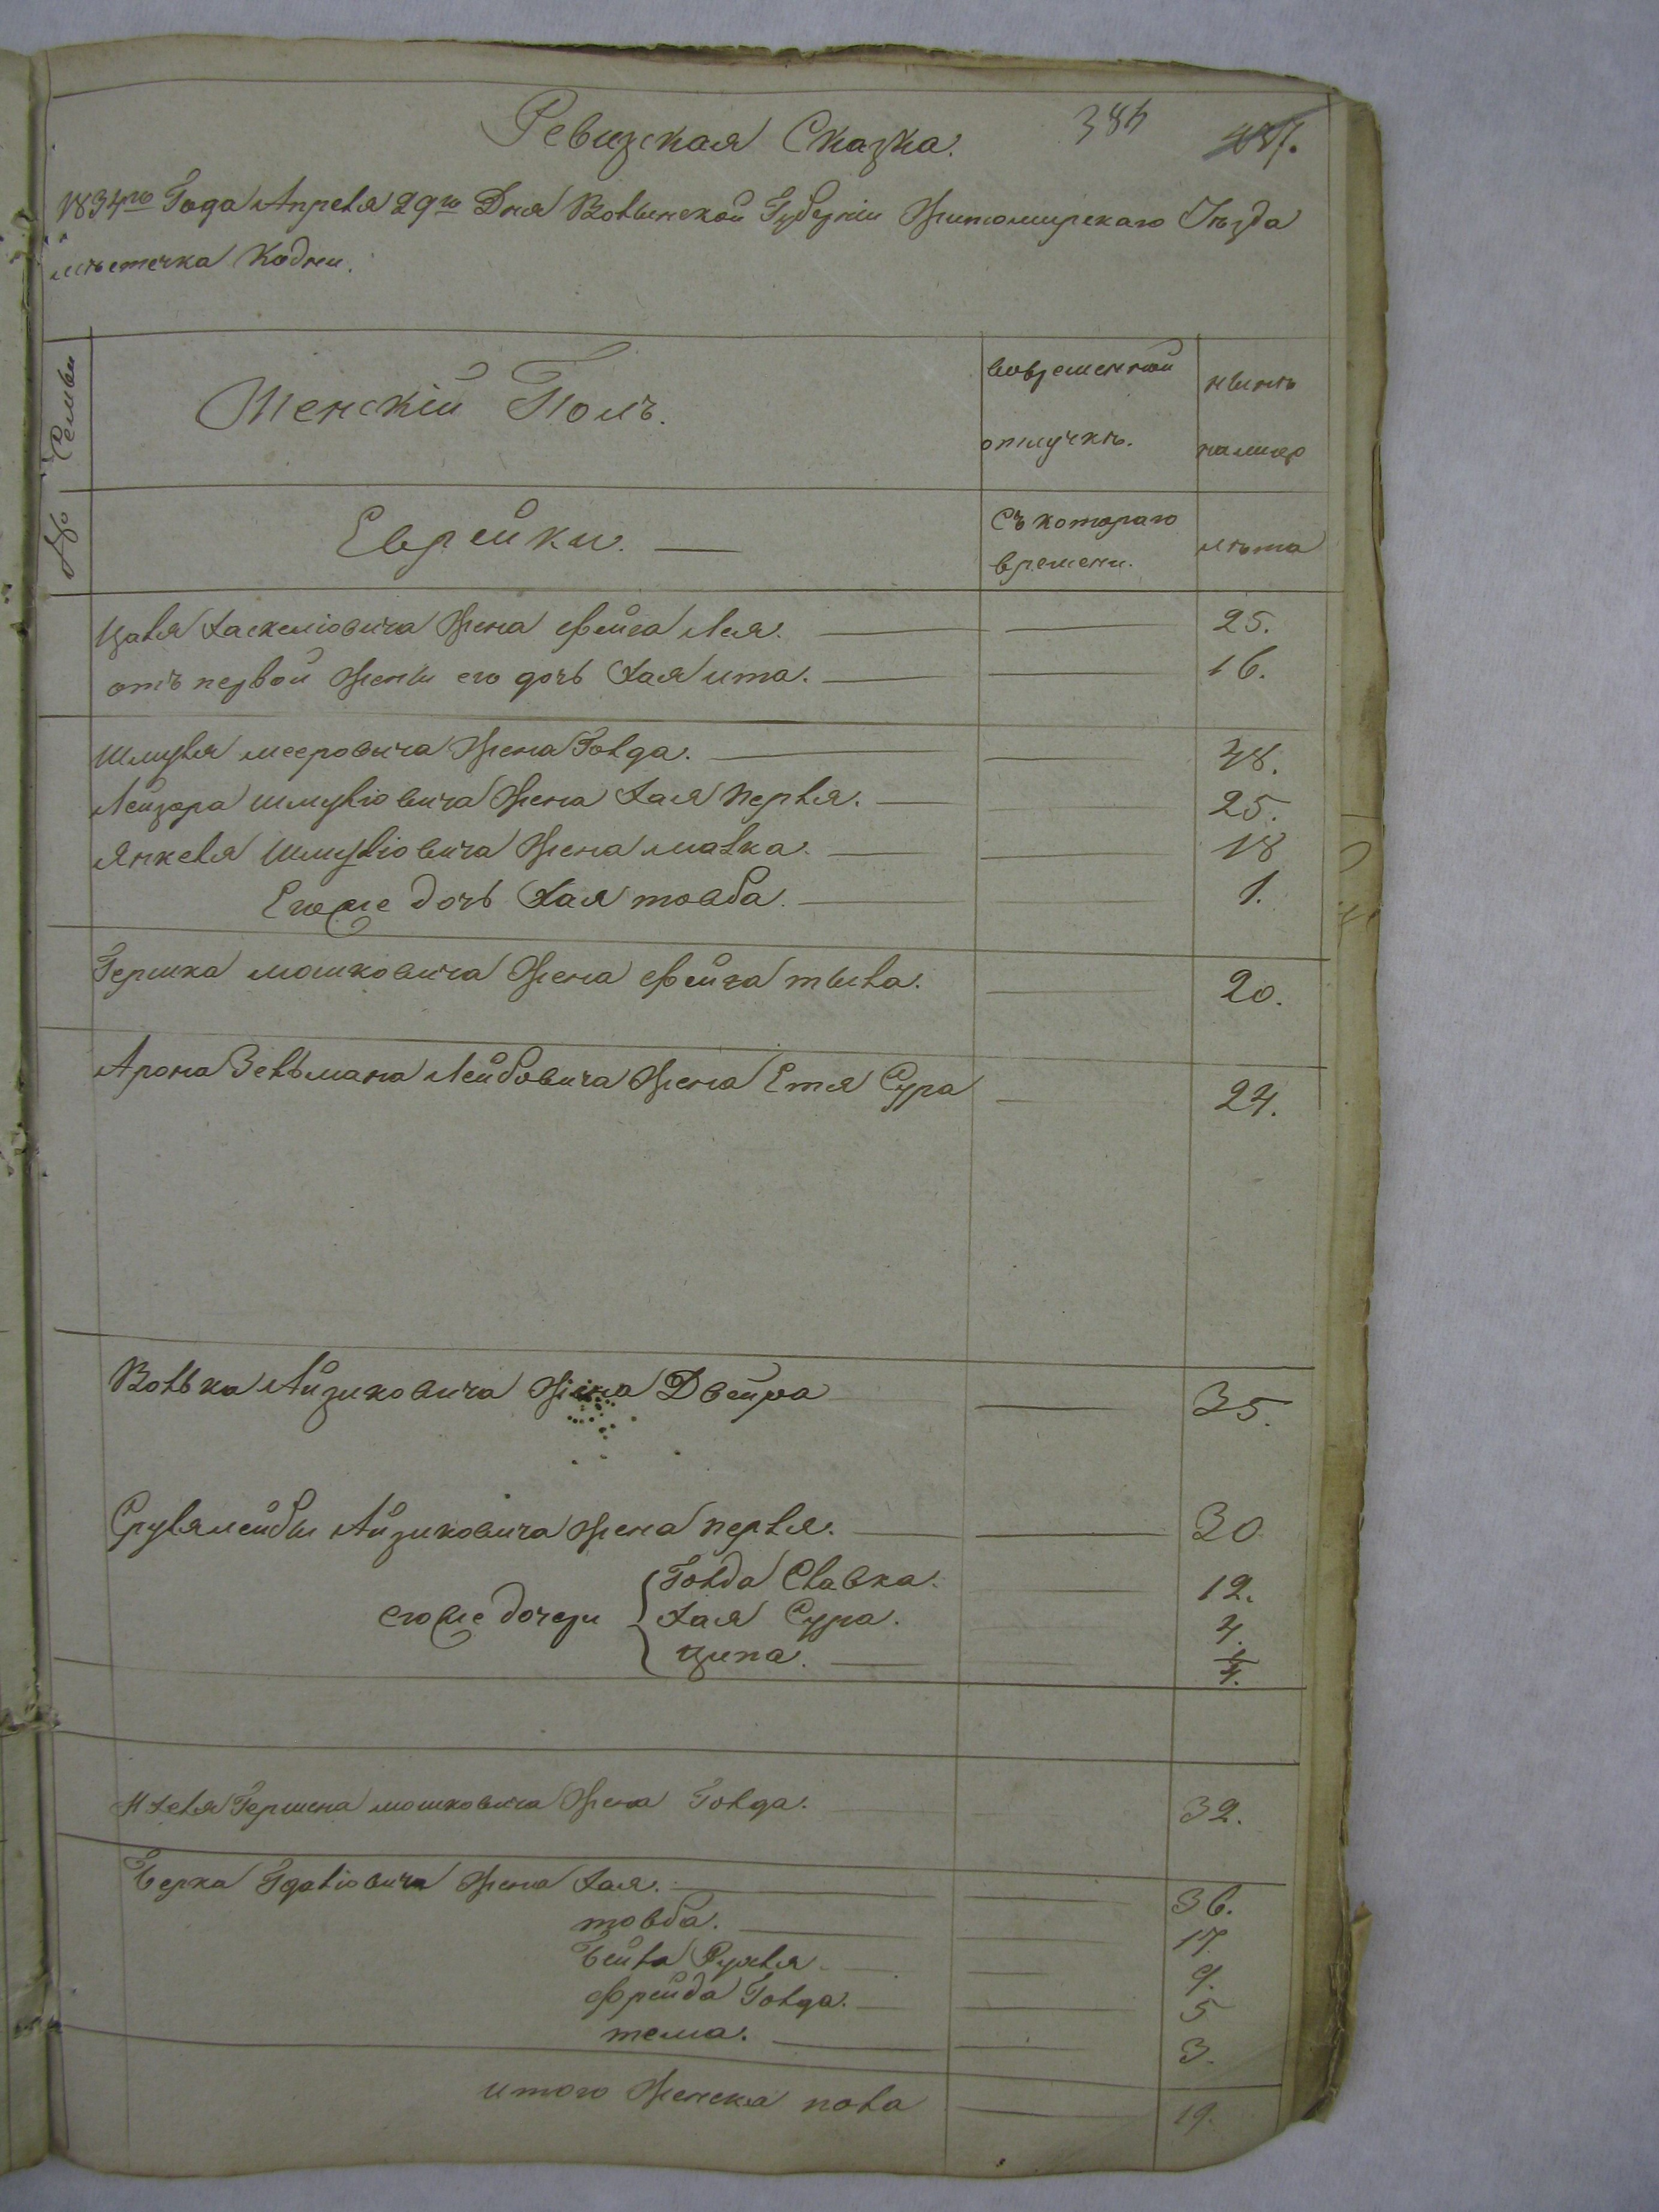 Ревизская Сказка.
384
1834го Года Апреля 29го Дня Волынской Губерніи Житомирскаго Уѣзда
мѣстечка Кодни.
№ Семьи
Женскій Полъ.
вовременной
отлучкѣ.
нынѣ
налицо
Еврейки.
Съ котораго
времени.
лѣта
Цаля Хаскеліовича Жена Фейга Лея. 25.
отъ первой жены его дочь Хая ита. 16.
Шмуля мееровича Жена Голда. 48.
Лейзора шмуліовича Жена Хая Перля. 25.
Янкеля Шмуліовича Жена малка. 18
Егоже дочь Хая товба. 1.
Гершка мошковича Жена Фейга тыла. 20.
Арона Зельмана Лейбовича Жена Етя Сура 24.
Волька Айзиковича Жена Двейра 35.
Сруля лейбы Айзиковича Жена перля. 30
егоже дочери
Голда Славка. 12.
Хая Сура. 4.
ципа. 1/4.
Ихеля Гершена мошковича Жена Голда. 32.
Берка Гдаліовича Жена Хая. 36.
товба. 17.
Бейла Рухля. 9.
Фрейда Голда. 5
тема. 3.
итого Женска пола 19.